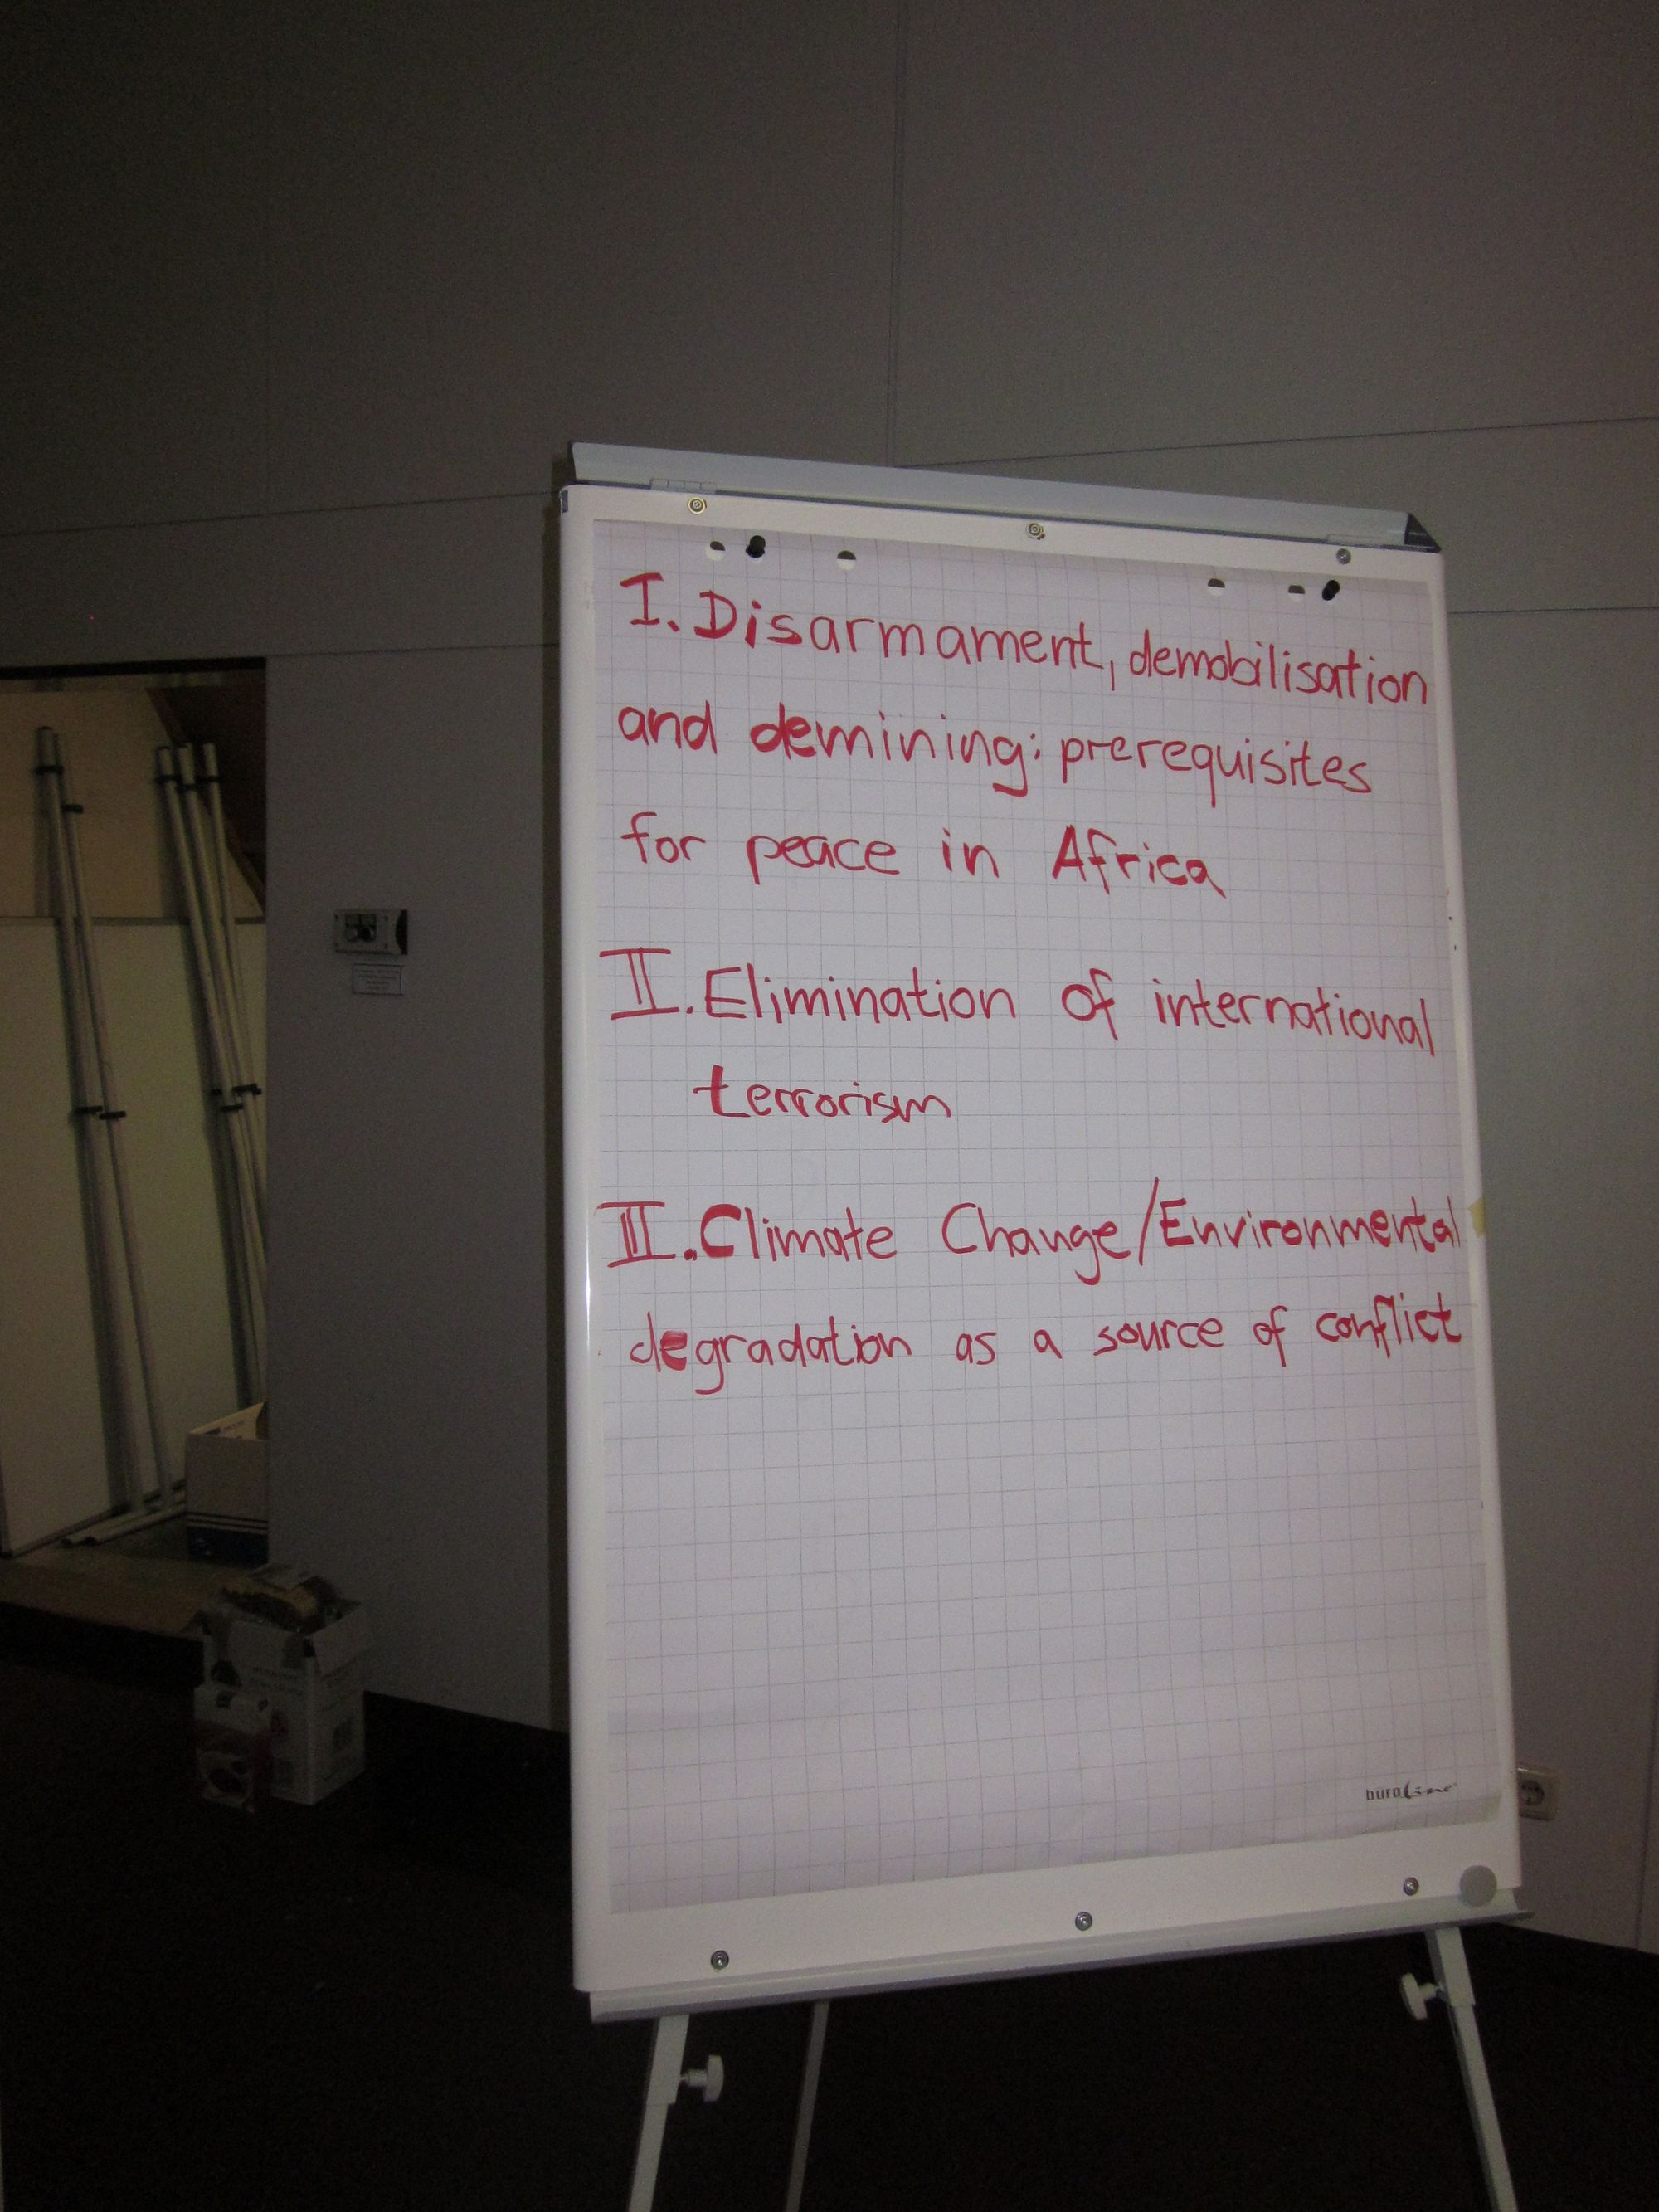 I. Disarmament, demobilisation
and demining: prerequisites
for peace in Africa
II. Elimination of international
terrorism
III. Climate Change/Environmental
degradation as a source of conflict
büroLine